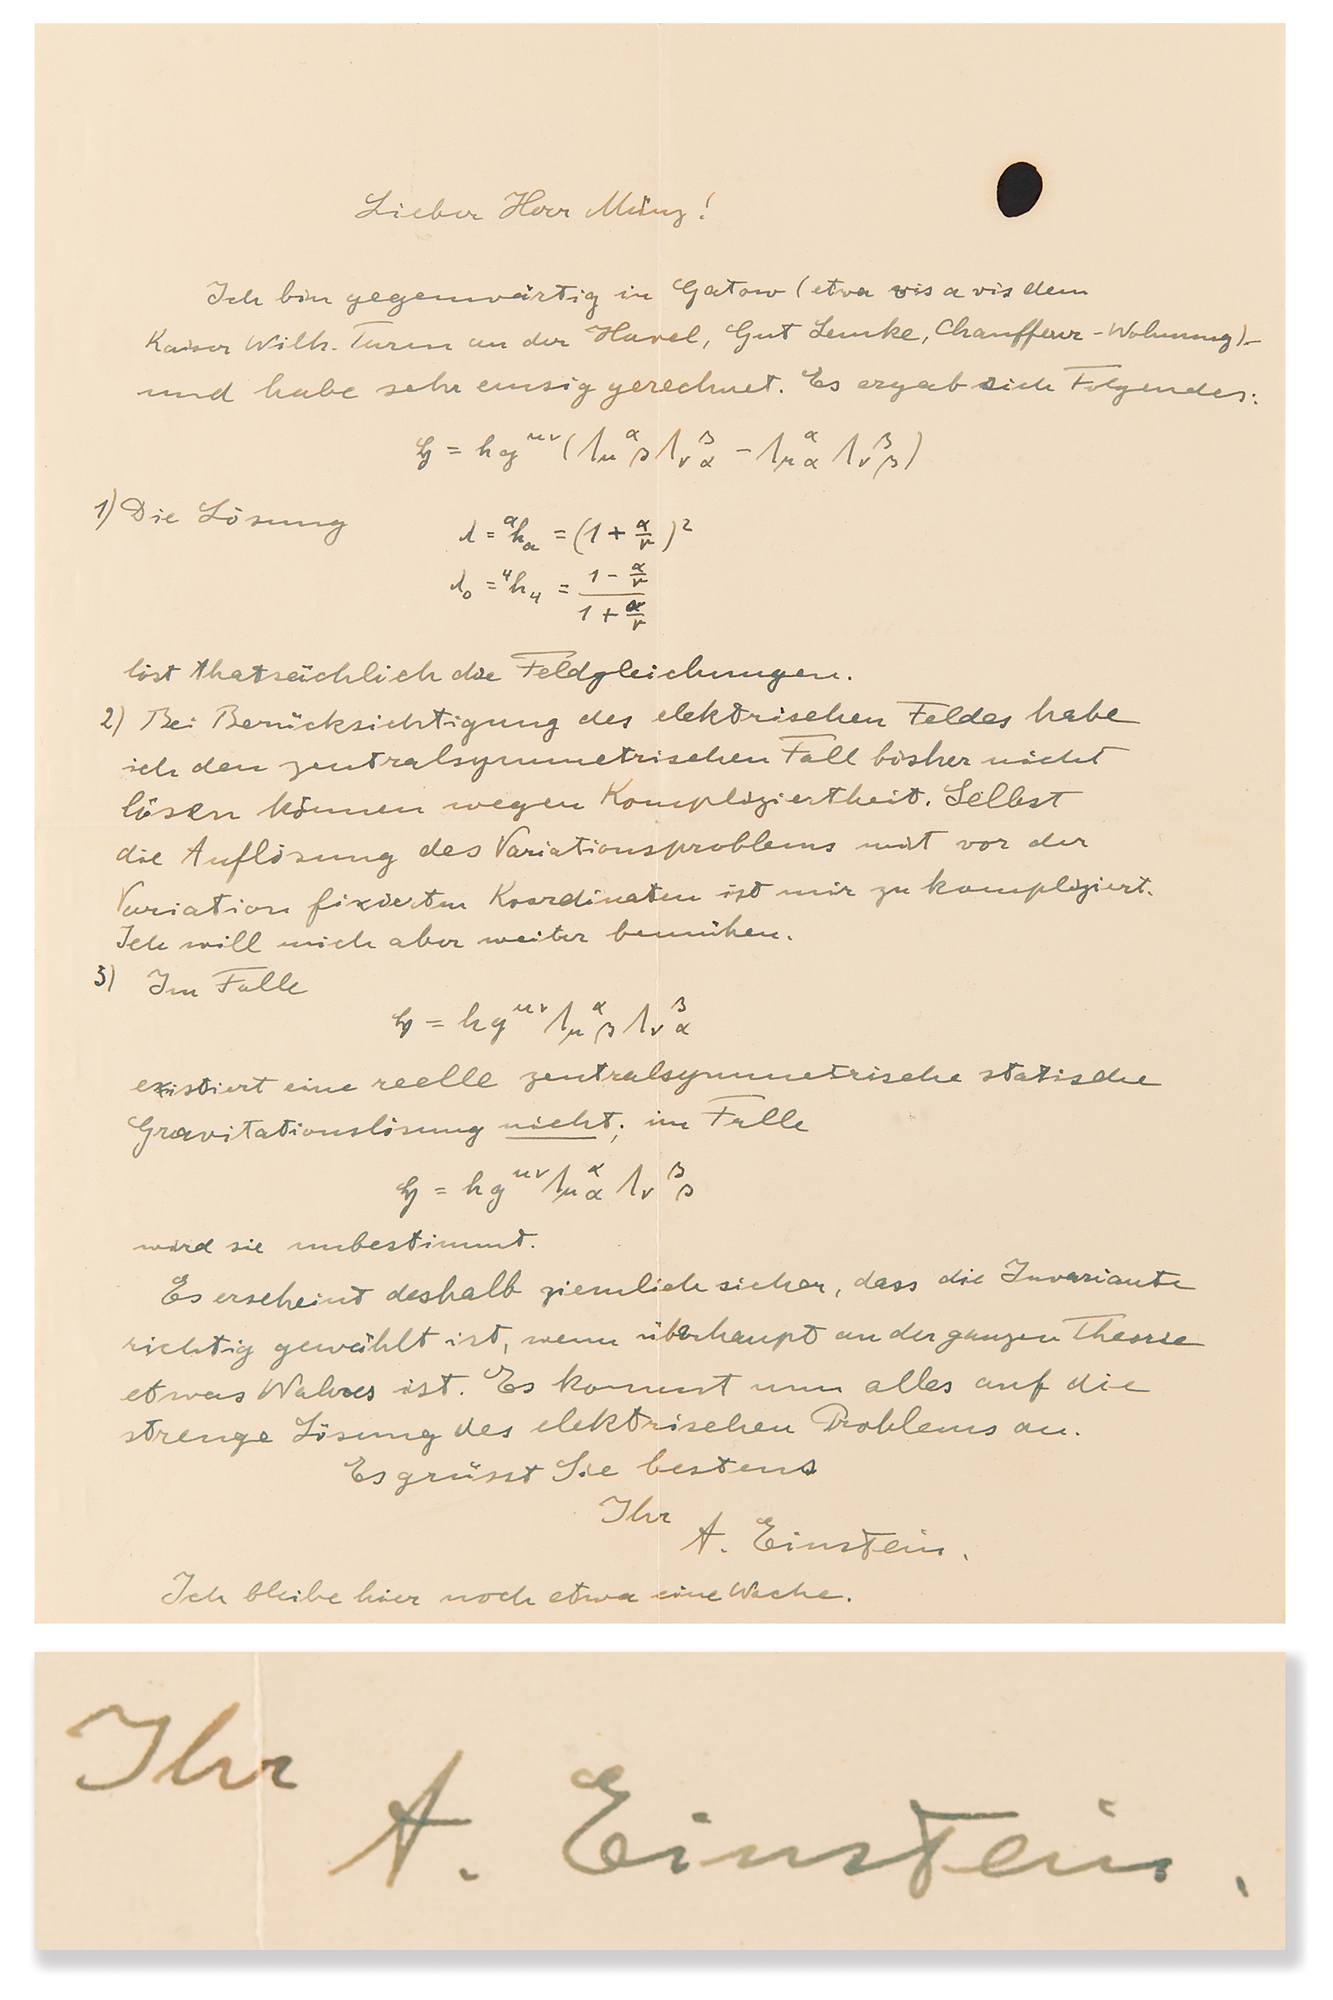 Lieber Herr Münz!
Ich bin gegenwärtig in Gatow (etwa vis a vis dem
Kaiser Wilh. Turm an der Havel, Gut Lemke, Chauffeur-Wohnung)
und habe sehr emsig gerechnet. Es ergab sich Folgendes:
𝔥 = h g^{μν} (Λ_μ^α_β Λ_ν^β_α − Λ_μ^α_α Λ_ν^β_β)
1) Die Lösung
λ = ^αh_α = (1 + α/r)^2
λ_0 = ^4h_4 = (1 − α/r)/(1 + α/r)
löst thatsächlich die Feldgleichungen.
2) Bei Berücksichtigung des elektrischen Feldes habe
ich den zentralsymmetrischen Fall bisher nicht
lösen können wegen Kompliziertheit. Selbst
die Auflösung des Variationsproblems mit vor der
Variation fixierten Koordinaten ist mir zu kompliziert.
Ich will mich aber weiter bemühen.
3) Im Falle
𝔥 = h g^{μν} Λ_μ^α_β Λ_ν^β_α
existiert eine reelle zentralsymmetrische statische
Gravitationslösung nicht; im Falle
𝔥 = h g^{μν} Λ_μ^α_α Λ_ν^β_β
wird sie unbestimmt.
Es erscheint deshalb ziemlich sicher, dass die Invariante
richtig gewählt ist, wenn überhaupt an der ganzen Theorie
etwas Wahres ist. Es kommt nun alles auf die
strenge Lösung des elektrischen Problems an.
Es grüsst Sie bestens
Ihr
A. Einstein.
Ich bleibe hier noch etwa eine Woche.
Ihr
A. Einstein.